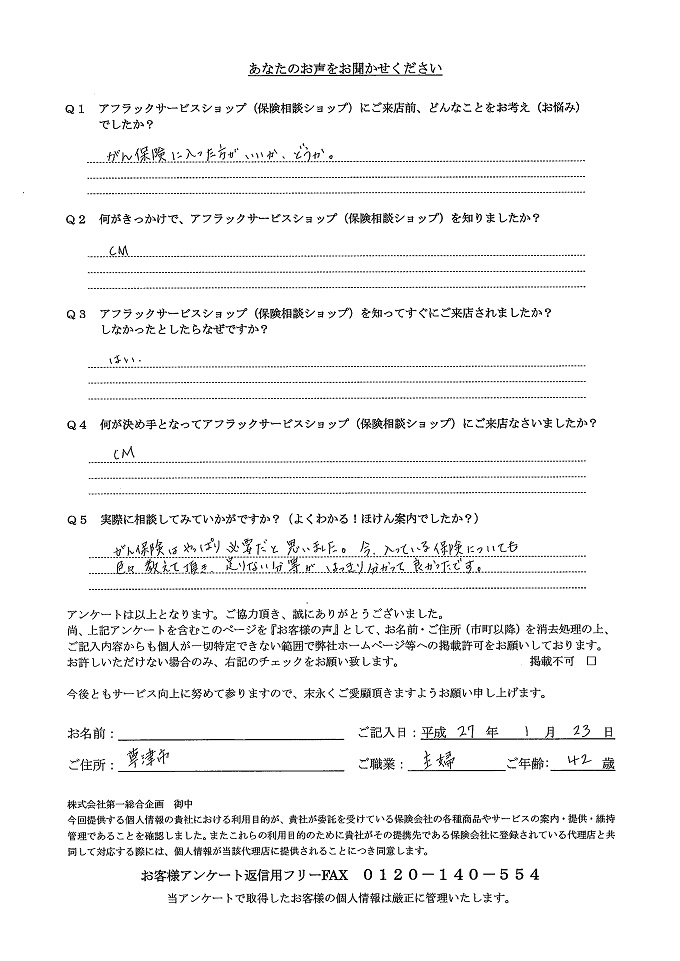 あなたのお声をお聞かせください
Q1 アフラックサービスショップ（保険相談ショップ）にご来店前、どんなことをお考え（お悩み）
でしたか？
がん保険に入った方がいいか、どうか。
Q2 何がきっかけで、アフラックサービスショップ（保険相談ショップ）を知りましたか？
CM
Q3 アフラックサービスショップ（保険相談ショップ）を知ってすぐにご来店されましたか？
しなかったとしたらなぜですか？
はい.
Q4 何が決め手となってアフラックサービスショップ（保険相談ショップ）にご来店なさいましたか？
CM
Q5 実際に相談してみていかがですか？（よくわかる！ほけん案内でしたか？）
がん保険はやっぱり必要だと思いました。今、入っている保険についても
色々教えて頂き、足りない分等がはっきり分かって良かったです。
アンケートは以上となります。ご協力頂き、誠にありがとうございました。
尚、上記アンケートを含むこのページを『お客様の声』として、お名前・ご住所（市町以降）を消去処理の上、
ご記入内容からも個人が一切特定できない範囲で弊社ホームページ等への掲載許可をお願いしております。
お許しいただけない場合のみ、右記のチェックをお願い致します。 掲載不可 □
今後ともサービス向上に努めて参りますので、末永くご愛顧頂きますようお願い申し上げます。
お名前： ご記入日：平成 27 年 1 月 23 日
ご住所： 草津市 ご職業： 主婦 ご年齢: 42 歳
株式会社第一総合企画 御中
今回提供する個人情報の貴社における利用目的が、貴社が委託を受けている保険会社の各種商品やサービスの案内・提供・維持
管理であることを確認しました。またこれらの利用目的のために貴社がその提携先である保険会社に登録されている代理店と共
同して対応する際には、個人情報が当該代理店に提供されることにつき同意します。
お客様アンケート返信用フリーFAX 0120－140－554
当アンケートで取得したお客様の個人情報は厳正に管理いたします。